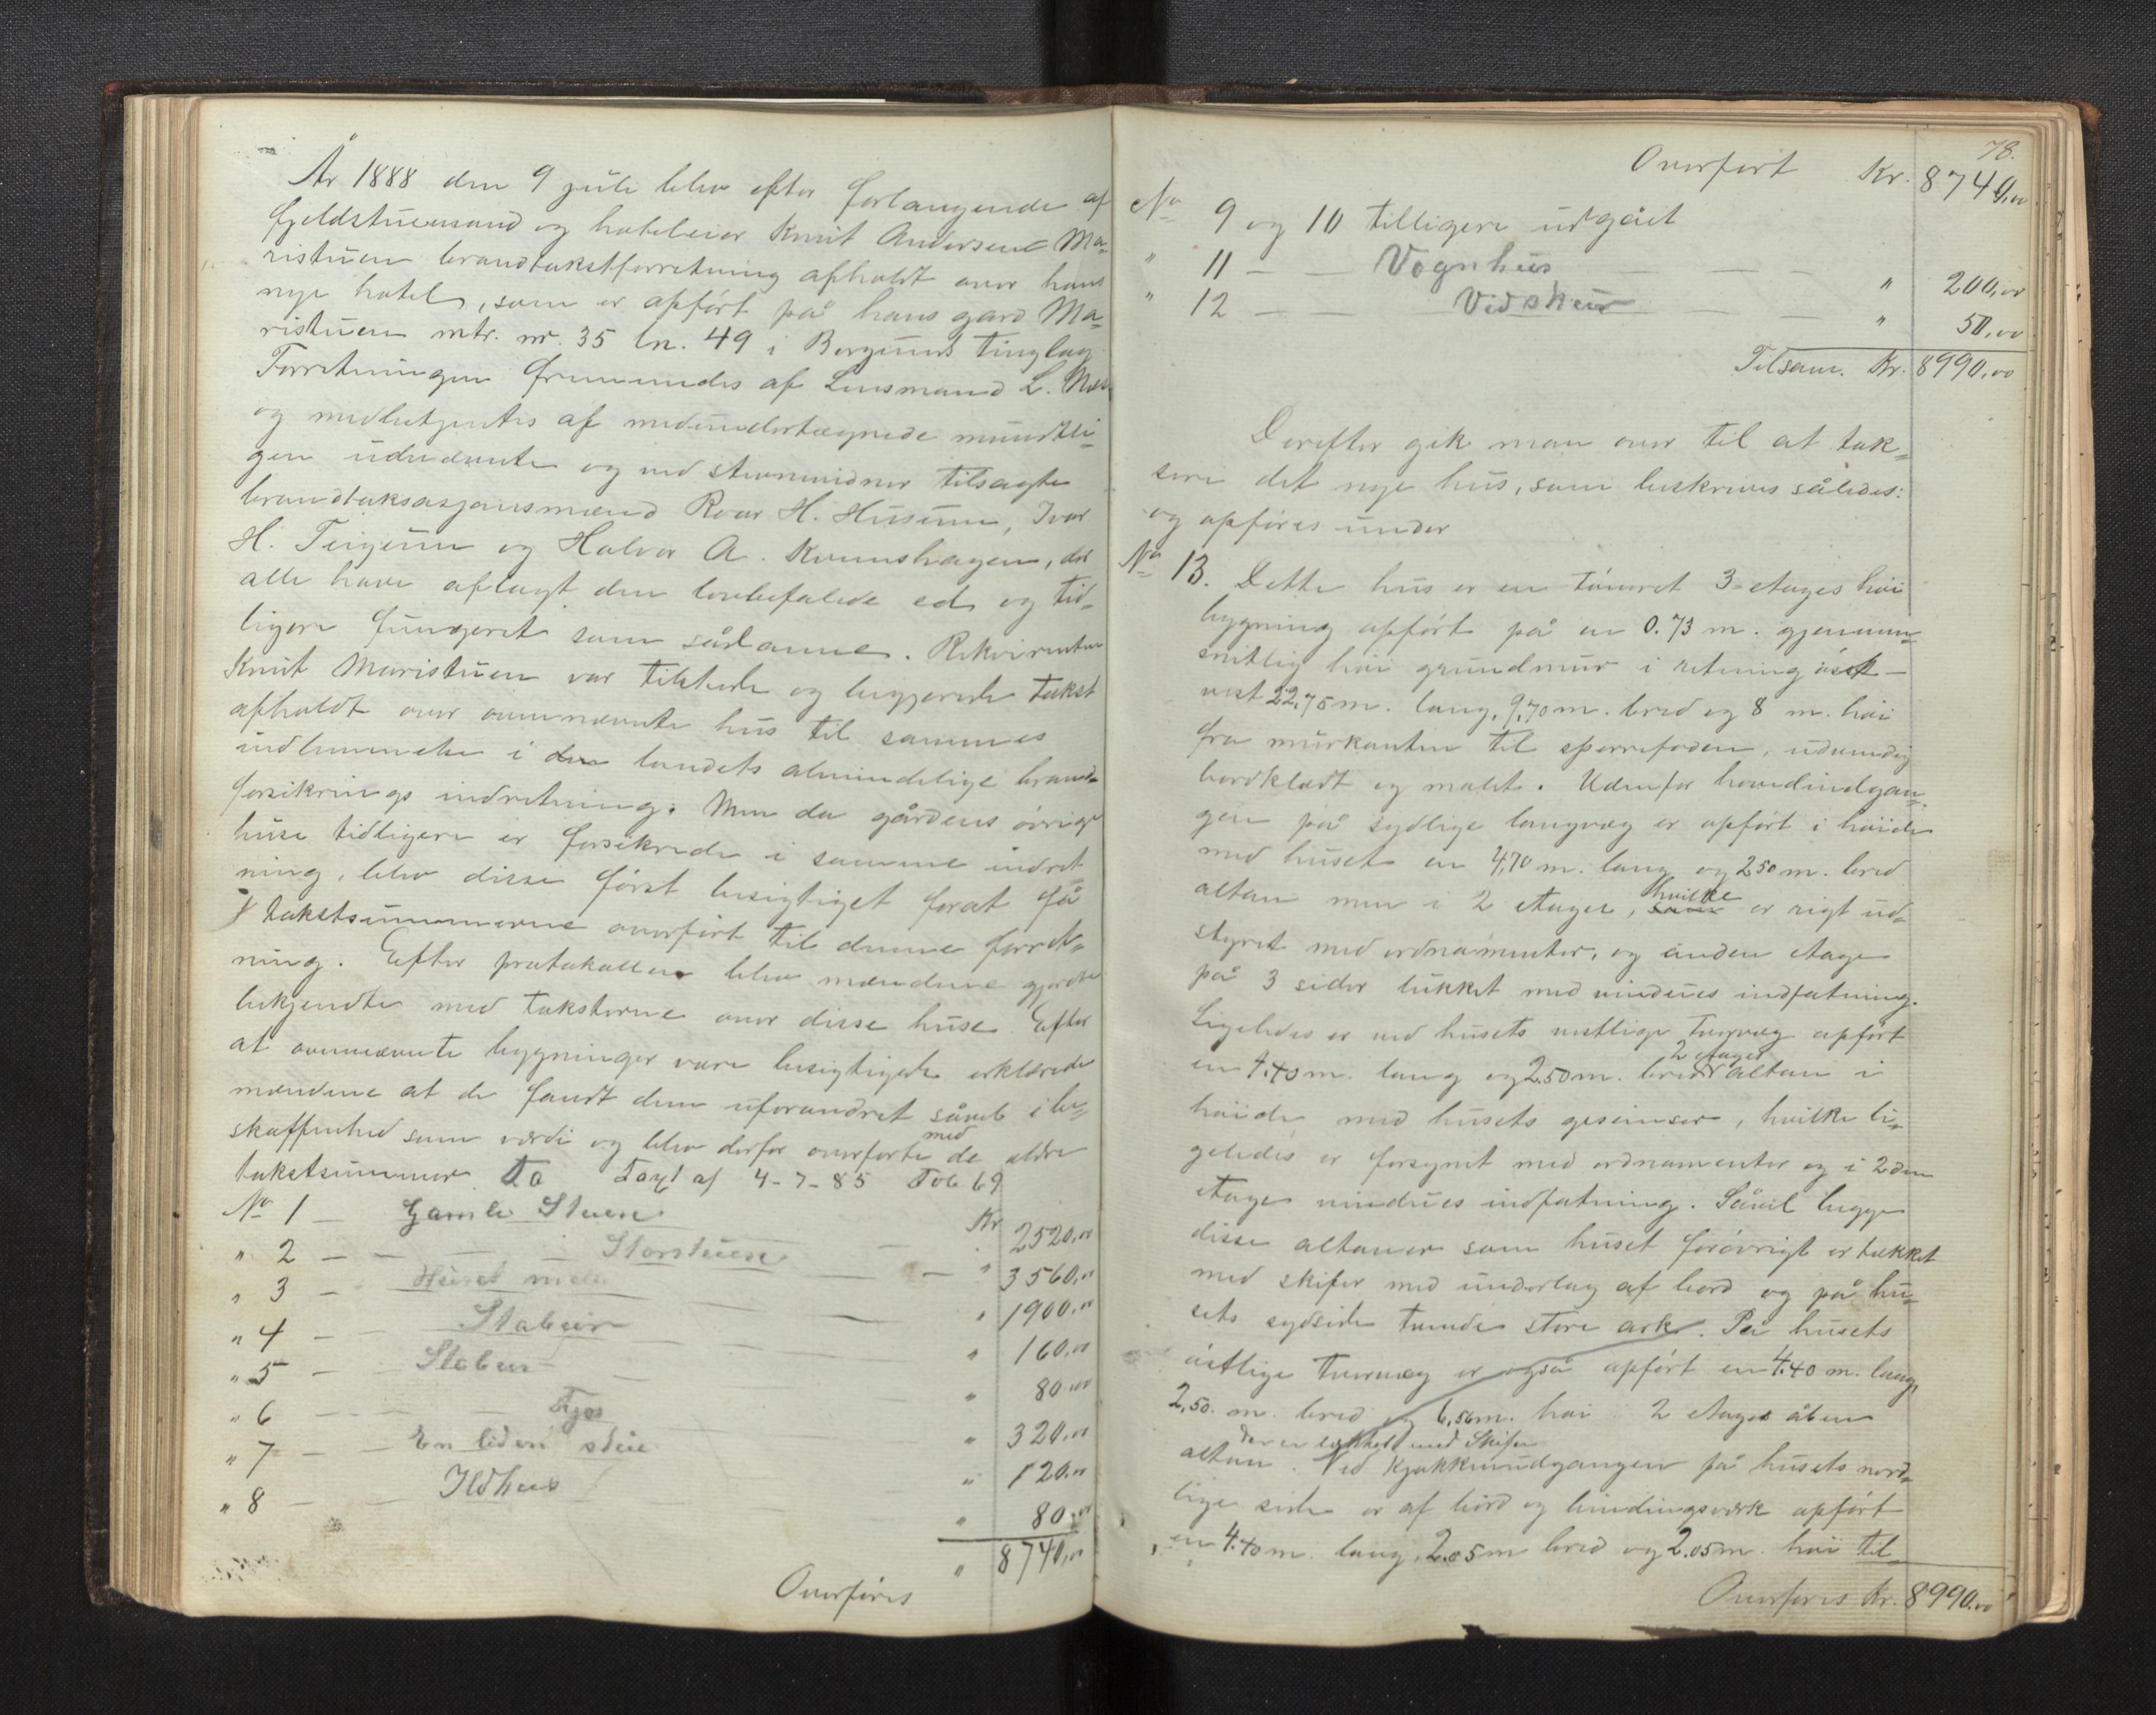 År 1888 den 9 juli blev efter forlangende af
fjeldstuemand og hoteleier Knut Andersen Ma-
ristuen brandtakstforretning afholdt over hans
nye hotel, som er opført på hans gard Ma-
ristuen mtr. nr. 35 ln. 49 i Borgund tinglag
Forretningen fremmedes af Lensmand L. Næs
og medbetjentes af medundertegnede mundtli-
gen udnævnte og ved stevnevidner tilsagte
brandtaksasjonsmænd Roar H. Husum, Ivar
H. Teigum og Halvor A. Kvamshagen, der
alle have aflagt den lovbefalede ed og tid-
ligere fungeret som sådanne. Rekvirenten
Knut Maristuen var tilstede og begjerede takst
afholdt over ovennævnte hus til sammes
indlemmelse i den landets almindelige brand-
forsikrings indretning. Men da gårdens øvrige
huse tidligere er forsikrede i samme indret-
ning, blev disse først besigtiget forat få
takstsummerne overført til denne forret-
ning. Efter protokollen blev mændene gjorte
bekjendte med taksterne over disse huse. Efter
at ovennævnte bygninger vare besigtigede erklærede
mændene at de fandt dem uforandret såvel i be-
skaffenhed som værdi og blev derfor overførte med de ældre
takstsummer Taxt af 4-7-85 Fol 69
No 1 - Gamle Stuen Kr 2520,00
" 2 - - - Storstuen - " 3560,00
" 3 - Huset - " 1900,00
" 4 - - Stabur - " 160,00
" 5 - - Stabur - " 80,00
" 6 - - - Fjøs " 320,00
" 7 - - En liden stue " 120,00
" 8 - - Ildhus " 80,00
" 8740,00
Overføres
78.
Overført Kr. 8740,00
No 9 og 10 tilligere udgået
" 11 - - Vognhus - - - " 200,00
" 12 - - Vedskur - - " 50,00
Tilsam. Kr. 8990,00
Derefter gik man over til at tak-
sere det nye hus, som beskrives således:
og opføres under
No 13. Dette hus er en tømret 3-etages høi
bygning opført på en 0.73 m. gjennem-
snitlig høi grundmur i retning øst-
vest 22,75 m. lang, 9,70 m. bred og 8 m. høi
fra murkanten til sperrefoden, udvendig
bordklædt og malet. Udenfor hovedindgan-
gen på sydlige langvæg er opført i høide
med huset en 4,70 m. lang og 250 m. bred
altan men i 2 etager, som hvilke er rigt ud-
styret med ordnamenter, og anden etage
på 3 sider lukket med vindues indfatning.
Ligeledes er ved husets vestlige tvervæg opført
en 4.40 m. lang og 2.50 m. bred 2 etages altan i
høide med husets gesimser, hvilke li-
geledes er forsynet med ordnamenter og i 2den
etage vindues indfatning. Såvel begge
disse altaner som huset forøvrigt er tækket
med skifer med underlag af bord og på hu-
sets sydside tvende store ark. På husets
østlige tvervæg er også opført en 4.40 m. lang,
2,50. m. bred og 6,56 m. høi 2 etages åben
altan. der er tækket med Skifer Ved kjøkkenudgangen på husets nord-
lige side er af bord og bindingsverk opført
en 4.40 m. lang, 2.05 m bred og 2.05 m. høi til-
Overføres Kr. 8990.00